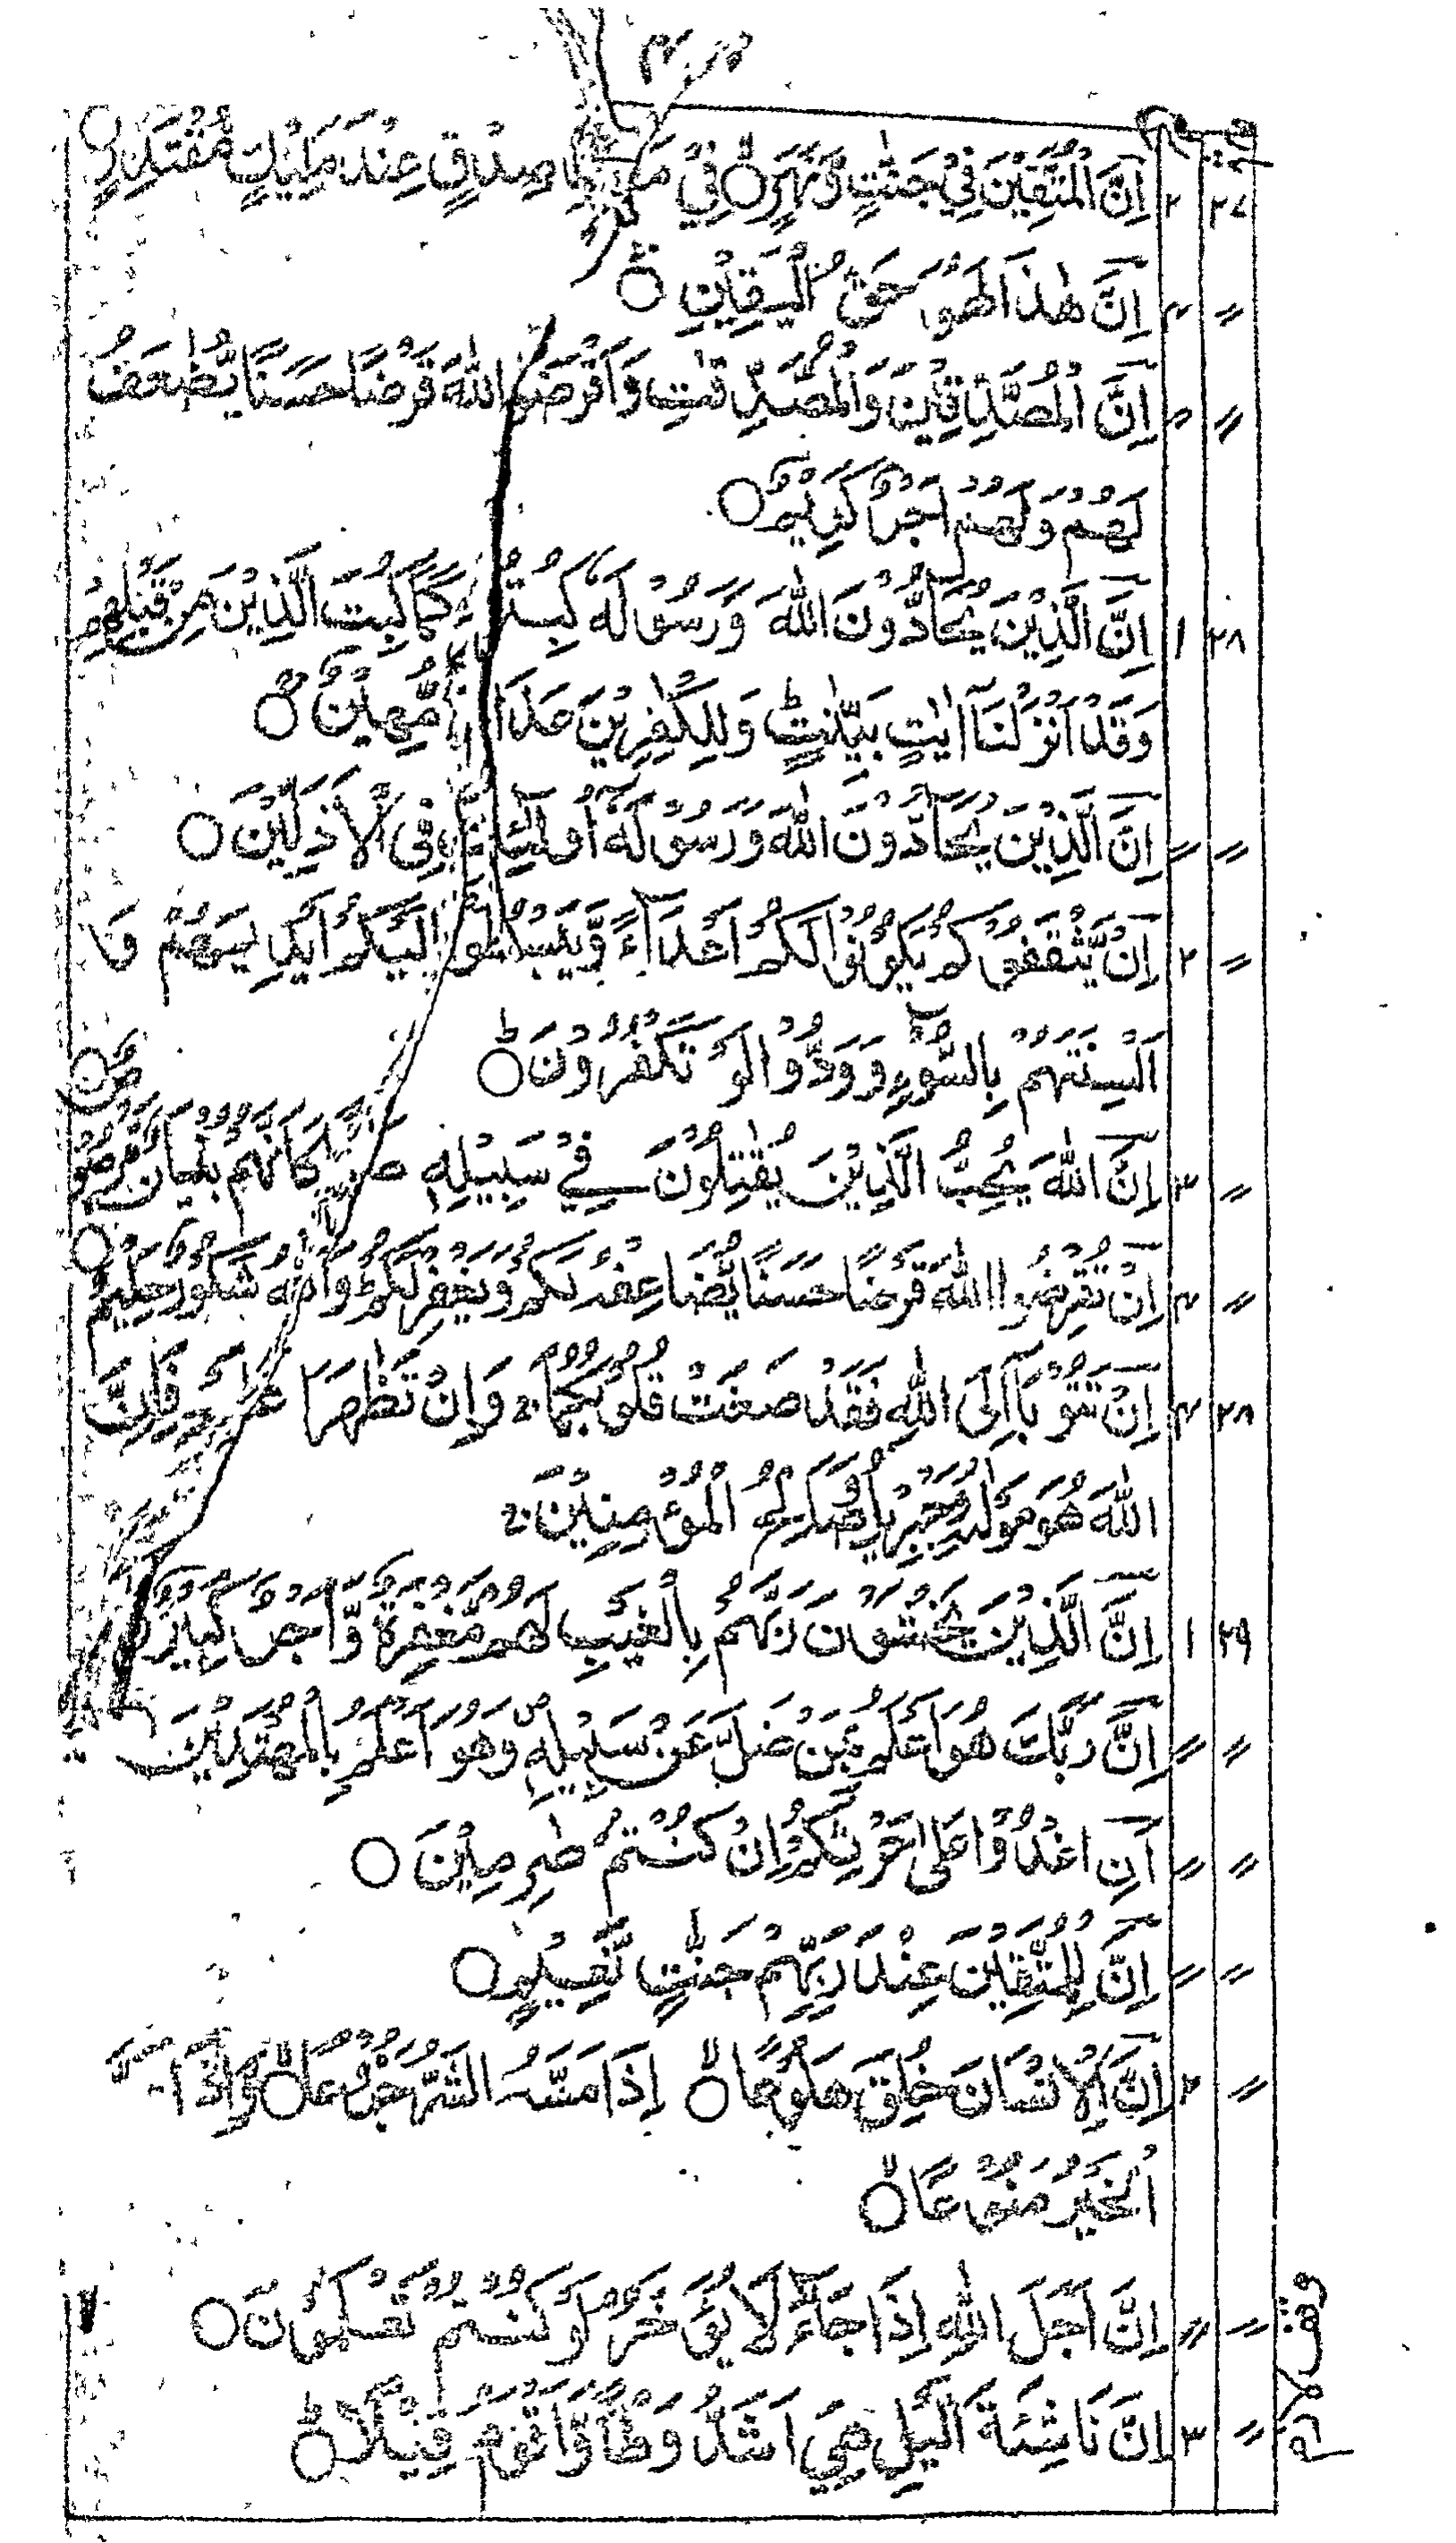 اِنَّ الْمُتَّقِيْنَ فِيْ جَنّٰتٍ وَّنَهَرٍ ۙ فِيْ صِدْقٍ عِنْدَ مَلِيْكٍ مُّقْتَدِرٍ ۲ ۲۷
اِنَّ هٰذَا لَهُوَ حَقُّ الْيَقِيْنِ ۴ 〃
اِنَّ الْمُصَّدِّقِيْنَ وَالْمُصَّدِّقٰتِ وَاَقْرَضُوا اللّٰهَ قَرْضًا حَسَنًا يُّضٰعَفُ 〃
لَهُمْ وَلَهُمْ اَجْرٌ كَرِيْمٌ
اِنَّ الَّذِيْنَ يُحَآدُّوْنَ اللّٰهَ وَرَسُوْلَهٗ كُبِتُوْا كَمَا كُبِتَ الَّذِيْنَ مِنْ قَبْلِهِمْ ۱ ۲۸
وَقَدْ اَنْزَلْنَآ اٰيٰتٍ بَيِّنٰتٍ ؕ وَلِلْكٰفِرِيْنَ عَذَابٌ مُّهِيْنٌ
اِنَّ الَّذِيْنَ يُحَآدُّوْنَ اللّٰهَ وَرَسُوْلَهٗٓ اُولٰٓئِكَ فِى الْاَذَلِّيْنَ 〃 〃
اِنْ يَّثْقَفُوْكُمْ يَكُوْنُوْا لَكُمْ اَعْدَآءً وَّيَبْسُطُوْٓا اِلَيْكُمْ اَيْدِيَهُمْ وَ ۲ 〃
اَلْسِنَتَهُمْ بِالسُّوْٓءِ وَوَدُّوْا لَوْ تَكْفُرُوْنَ ؕ
اِنَّ اللّٰهَ يُحِبُّ الَّذِيْنَ يُقٰتِلُوْنَ فِيْ سَبِيْلِهٖ كَاَنَّهُمْ بُنْيَانٌ مَّرْصُوْصٌ ۳ 〃
اِنْ تُقْرِضُوا اللّٰهَ قَرْضًا حَسَنًا يُّضَاعِفْهُ لَكُمْ وَيَغْفِرْ لَكُمْ ؕ وَاللّٰهُ شَكُوْرٌ حَلِيْمٌ ۴ 〃
اِنْ تَتُوْبَآ اِلَى اللّٰهِ فَقَدْ صَغَتْ قُلُوْبُكُمَا ۚ وَاِنْ تَظٰهَرَا فَاِنَّ ۴ ۲۸
اللّٰهَ هُوَ مَوْلٰىهُ وَجِبْرِيْلُ وَصَالِحُ الْمُؤْمِنِيْنَ ۚ
اِنَّ الَّذِيْنَ يَخْشَوْنَ رَبَّهُمْ بِالْغَيْبِ لَهُمْ مَّغْفِرَةٌ وَّاَجْرٌ كَبِيْرٌ ۱ ۲۹
اِنَّ رَبَّكَ هُوَ اَعْلَمُ بِمَنْ ضَلَّ عَنْ سَبِيْلِهٖ وَهُوَ اَعْلَمُ بِالْمُهْتَدِيْنَ 〃 〃
اَنِ اغْدُوْا عَلٰى حَرْثِكُمْ اِنْ كُنْتُمْ صٰرِمِيْنَ 〃 〃
اِنَّ لِلْمُتَّقِيْنَ عِنْدَ رَبِّهِمْ جَنّٰتِ نَّعِيْمٍ 〃 〃
اِنَّ الْاِنْسَانَ خُلِقَ هَلُوْعًا ۙ اِذَا مَسَّهُ الشَّرُّ جَزُوْعًا ۙ وَّاِذَا ۲ 〃
الْخَيْرُ مَنُوْعًا ۙ
اِنَّ اَجَلَ اللّٰهِ اِذَا جَآءَ لَا يُؤَخَّرُ لَوْ كُنْتُمْ تَعْلَمُوْنَ 〃 〃
اِنَّ نَاشِئَةَ الَّيْلِ هِيَ اَشَدُّ وَطْاً وَّاَقْوَمُ قِيْلًا ؕ ۳ 〃